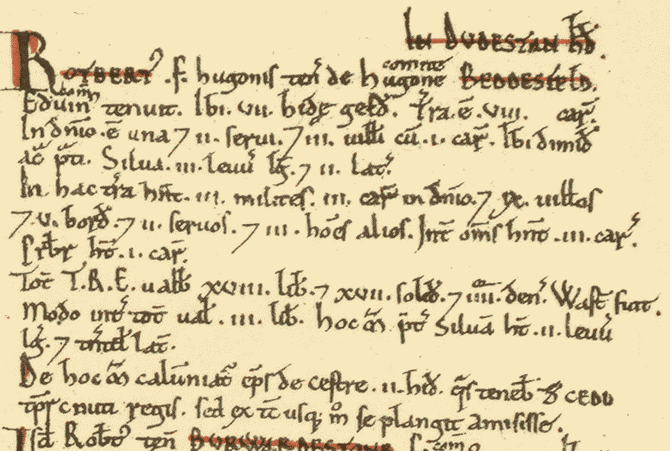 IN DVDESTAN HD̄.
ROTBERT᷑ .f. hugonis ten̄ de hugone comite BEDDESFELD.
Eduin᷑ com̄ tenuit. Ibi .vii. hidę geld̄. T̄ra.ē .viii. car̄.
In dn̄io.ē una ⁊ ii. serui. ⁊ iii. uilli cū .i. car̄. Ibi dimid̄
ac̄ p̄ti. Silua .iii. leuu᷑ lḡ. ⁊ ii. lat᷑.
In hac t̄ra hn̄t .iii. milites .iii. car̄ in dn̄io. ⁊ ix. uill̄os
⁊ v. bord̄. ⁊ ii. seruos. ⁊ iii. hōes alios. Int̄ om̄s hn̄t .iii. car̄.
hт̄ .i. car̄.
Tot̄ T.R.E. ualb̄ xviii. lib̄. ⁊ xvii. solid̄. ⁊ iiii. den̄. Wast̄ fuit.
Modo int̄ tot̄ ual̄ .iii. lib̄. hoc m̄ p̄t᷑ Siluā ht̄ .ii. leuu᷑
lḡ. ⁊ tn̄td̄ lat̄.
De hoc m̄ calūniat᷑ ep̄s de cestre .ii. hid̄. q̄s teneb̄ S' CEDD
tp̄r cnuti regis. sed ex tc̄ usq; m̊ se plangit amisisse.
Isd̄ Robt᷑ ten̄ BVRWARDESTONE.